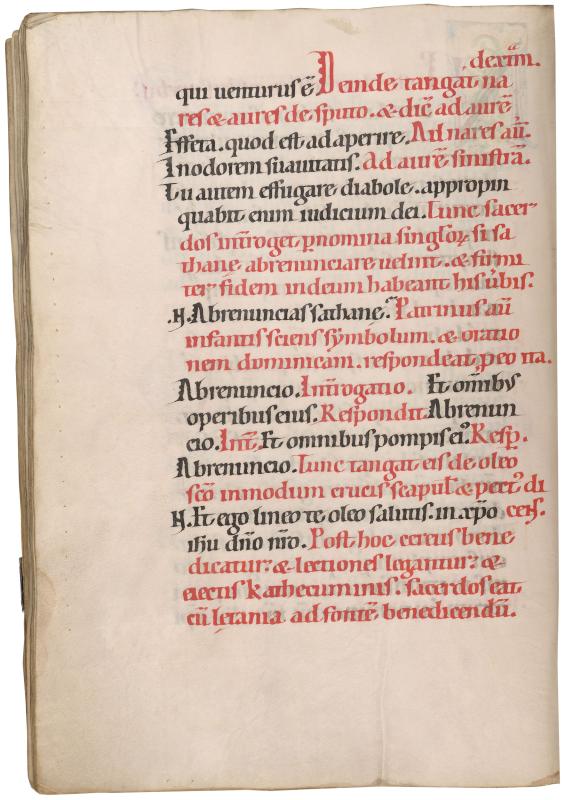 dext̄m.
qui uenturus ē. Deinde tangat̄ na
res & aures de sputo. & dic̄ ad aurē
Effeta. quod est adaperire. Ad nares aū.
In odorem suauitatis. Ad aurē sinistrā.
Tu autem effugare diabole. appropin
quabit enim iudicium dei. Tunc sacer
dos int̄roget p̄ nomina singl̄oꝝ. si sa
thane abrenunciare uelint. & firmi
ter fidem in deum habeant his ūbis.
.N. Abrenuncias sathane. Patrinus aū
infantis sciens sẏmbolum. & oratio
nem dominicam. respondeat, p eo ita.
Abrenuncio. Int̄rogatio. Et om̄ibus
operibus eius. Respondit. Abrenun
cio. Int̄. Et omnibus pompis ei⁹. Resp̄.
Abrenuncio. Tunc tangat eis de oleo
sc̄o in modum crucis scapul̄ & pect⁹ di
cens.
N. Et ego lineo te oleo salutis. in xp̄o
ih̄u dn̄o nr̄o. Post hoc cereus bene
dicatur. & lectiones legantur. &
eiectis kathecuminis. sacerdos eat
cū letania ad fontē benedicendū.